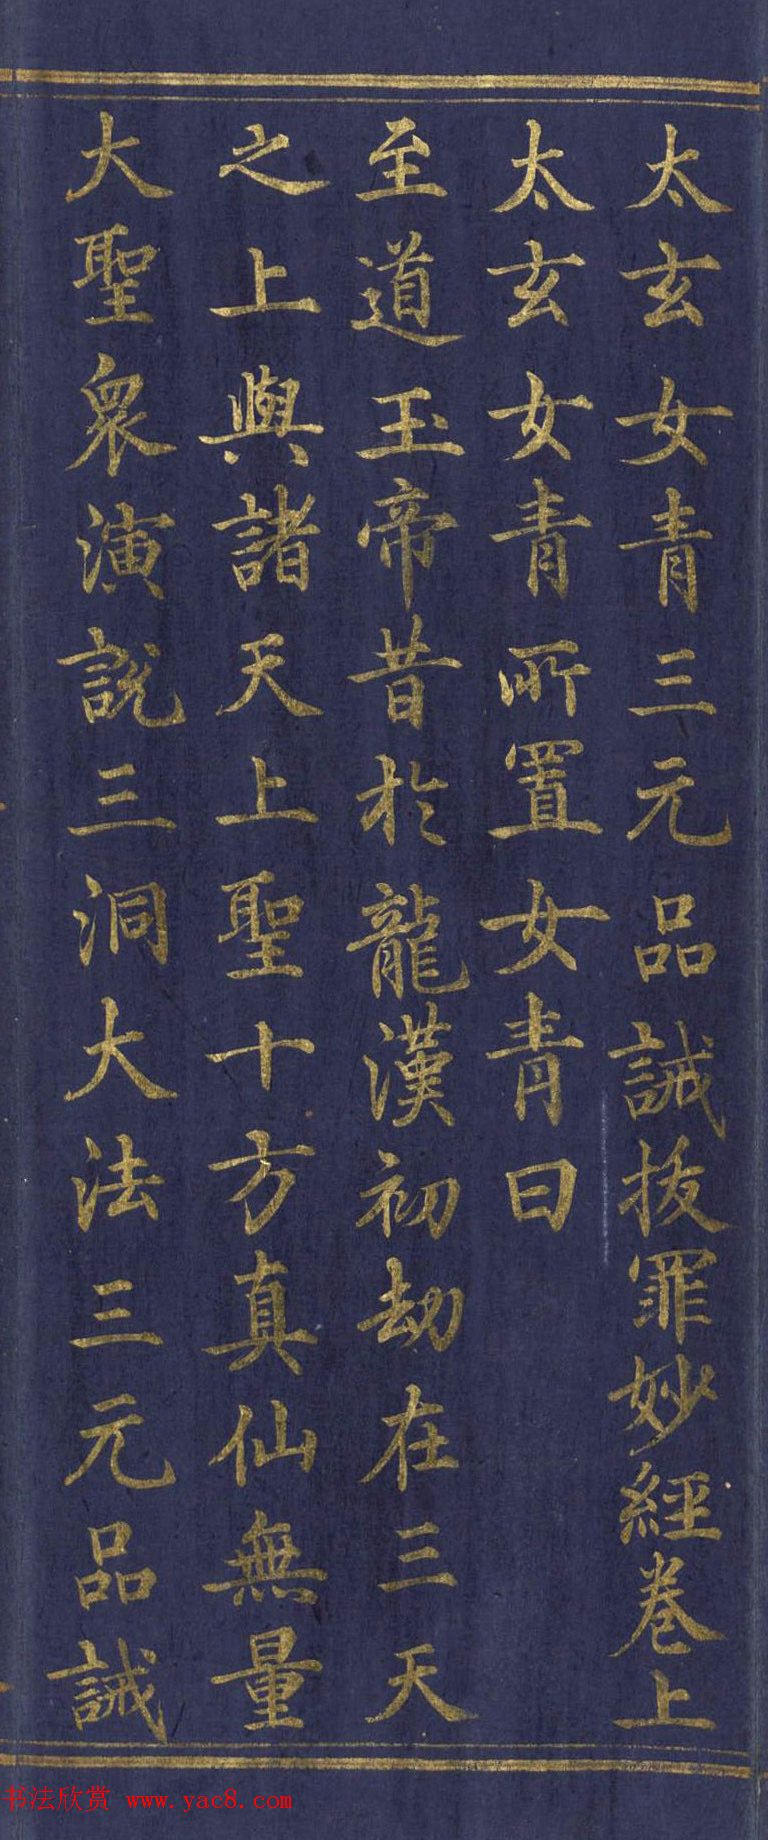 太玄女青三元品誡拔罪妙經卷上
太玄女青所置女青曰
至道玉帝昔於龍漢初劫在三天
之上與諸天上聖十方真仙無量
大聖眾演說三洞大法三元品誡
书法欣赏 www.yac8.com